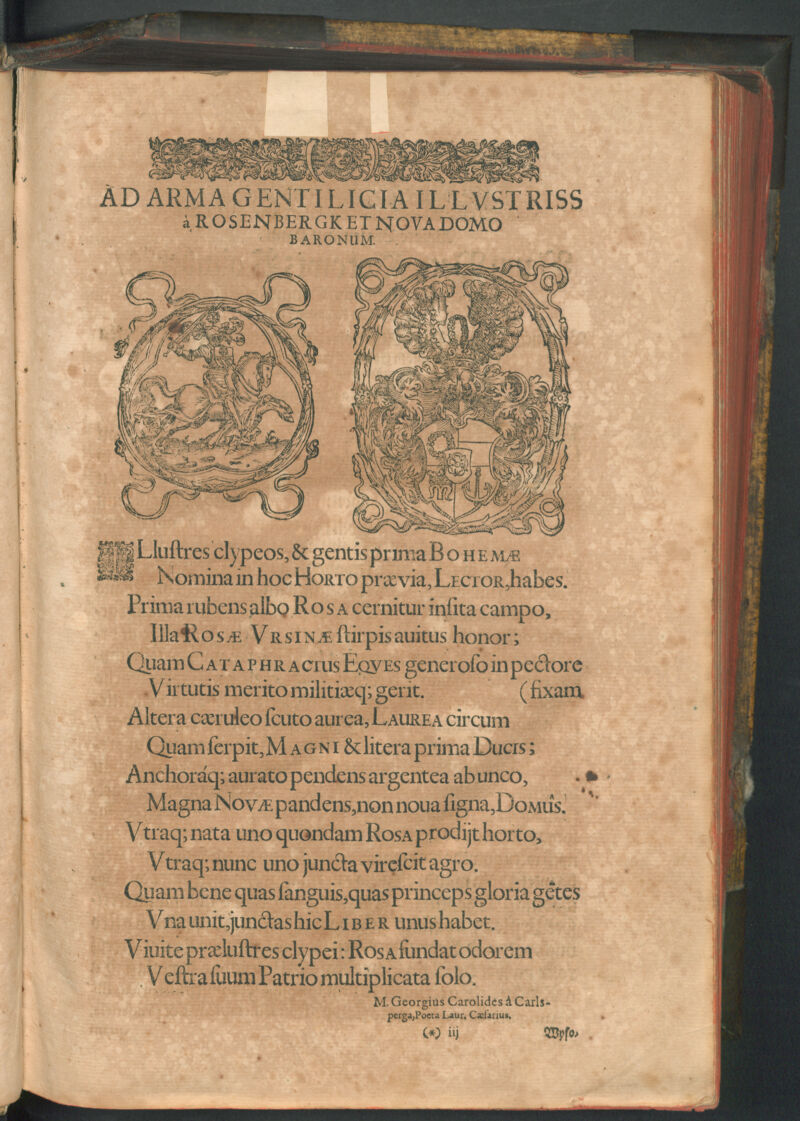 AD ARMA GENTILICIA ILLVSTRISS
à ROSENBERGK ET NOVA DOMO
BARONUM.
ILluſtres clypeos, & gentis prima BOHEMÆ
Nomina in hoc HORTO prævia, LECTOR, habes.
Prima rubens albo ROSA cernitur inſita campo,
Illa ROSÆ VRSINÆ ſtirpis auitus honor;
Quam CATAPHRACTUS EQVES generoſo in pectore
Virtutis merito militiæq; gerit. (fixam
Altera cæruleo ſcuto aurea, LAUREA circum
Quam ſerpit, MAGNI & litera prima DUCIS;
Anchoráq; aurato pendens argentea ab unco,
Magna NOVÆ pandens, non noua ſigna, DOMÛS.
Vtraq; nata uno quondam ROSA prodijt horto,
Vtraq; nunc uno juncta vireſcit agro.
Quam bene quas ſanguis, quas princeps gloria gētes
Vna unit, junctas hic LIBER unus habet.
Viuite præluſtres clypei: ROSA fundat odorem
Veſtra ſuum Patrio multiplicata ſolo.
M. Georgius Carolides à Carlſ-
perga, Poeta Laur. Cæſarius.
(*) iij Wyſo-